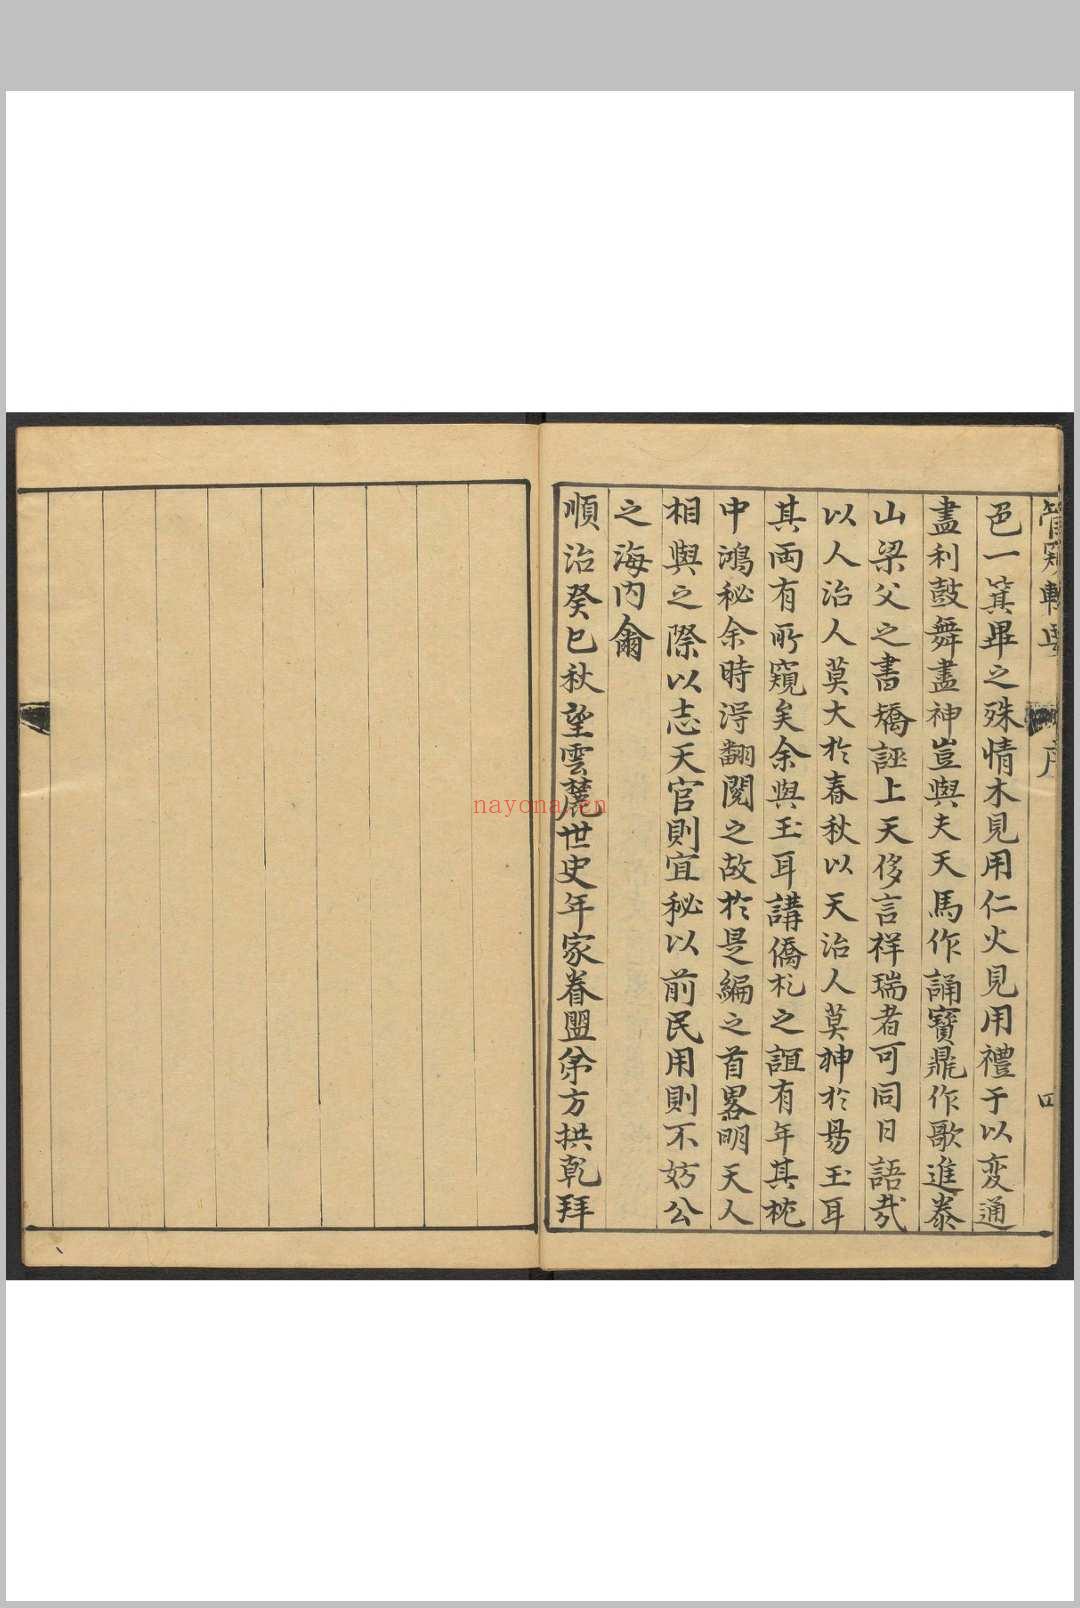 管窺輯要
序
四
邑一箕畢之殊情木見用仁火見用禮于以変通
盡利鼓舞盡神豈與夫天馬作誦寶鼎作歌進泰
山梁父之書矯誣上天侈言祥瑞者可同日語哉
以人治人莫大扵春秋以天治人莫神扵昜玉耳
其両有所窺矣余與玉耳講僑札之誼有年其枕
中鴻秘余時淂翻閱之故扵是編之首畧明天人
相與之際以志天官則宜秘以前民用則不妨公
之海内龠
順治癸巳秋望雲麓世史年家眷盟弟方拱乾拜
nayona.cn